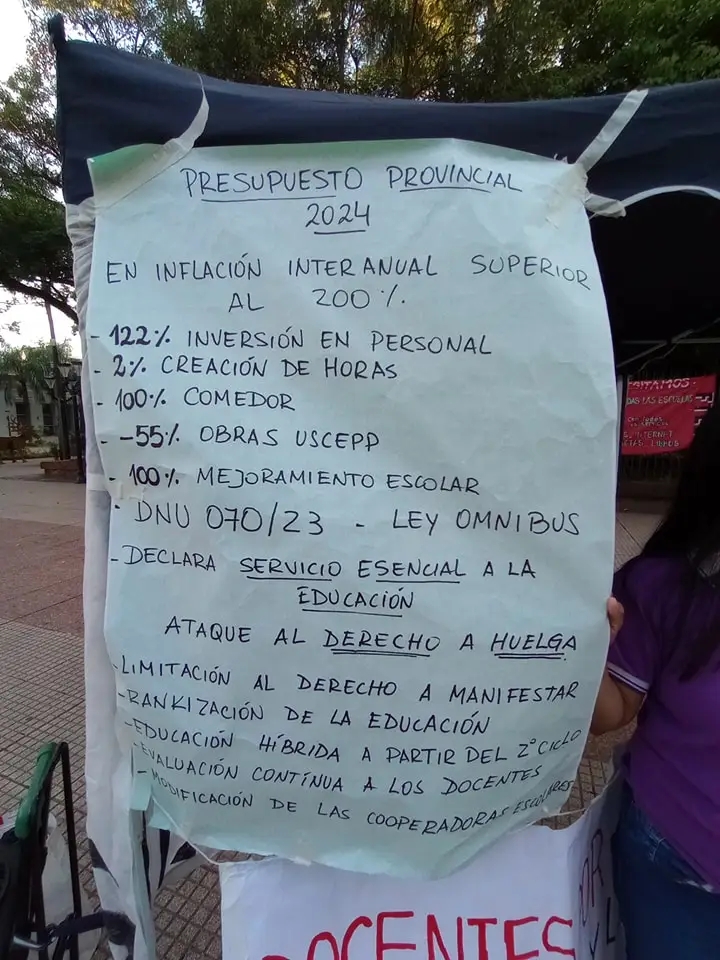 PRESUPUESTO PROVINCIAL
2024
EN INFLACIÓN INTERANUAL SUPERIOR
AL 200%.
- 122% INVERSIÓN EN PERSONAL
- 2% CREACIÓN DE HORAS
- 100% COMEDOR
- -55% OBRAS USCEPP
- 100% MEJORAMIENTO ESCOLAR
· DNU 070/23 - LEY OMNIBUS
- DECLARA SERVICIO ESENCIAL A LA
EDUCACIÓN
ATAQUE AL DERECHO A HUELGA
-LIMITACIÓN AL DERECHO A MANIFESTAR
-RANKIZACIÓN DE LA EDUCACIÓN
-EDUCACIÓN HÍBRIDA A PARTIR DEL 2° CICLO
-EVALUACIÓN CONTÍNUA A LOS DOCENTES
- MODIFICACIÓN DE LAS COOPERADORAS ESCOLARES
DOCENTES